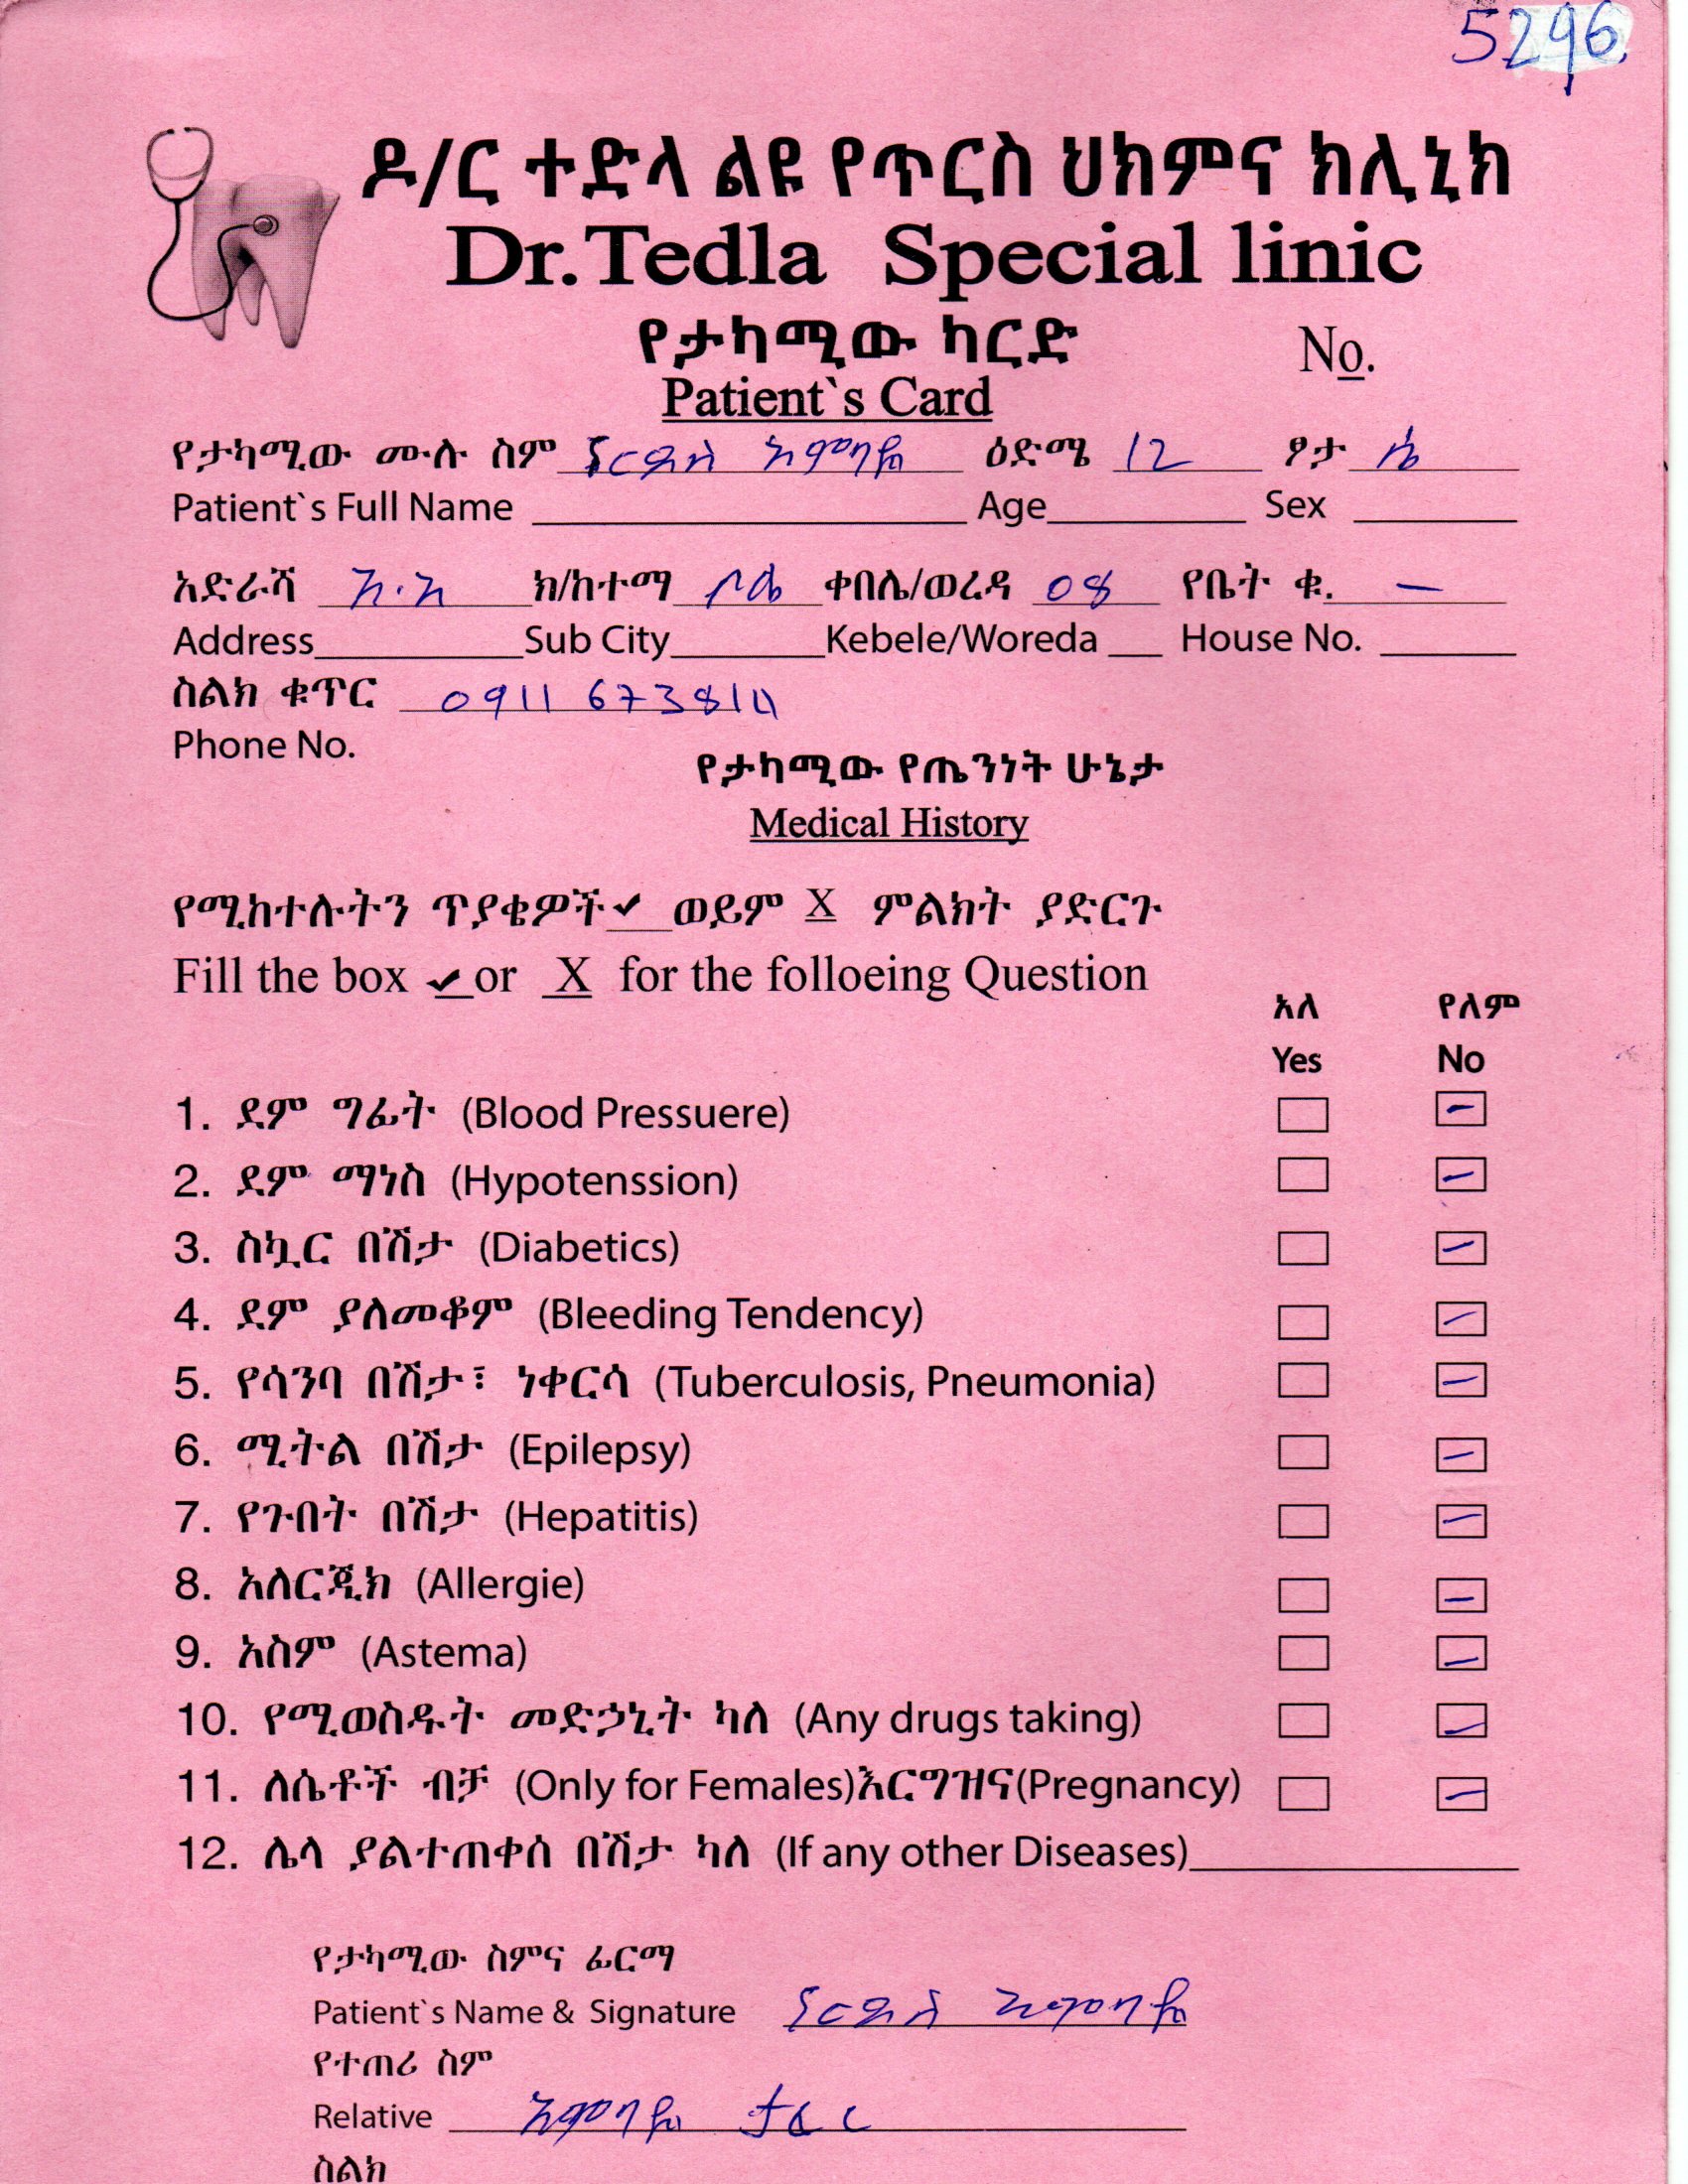 5296
ዶ/ር ተድላ ልዩ የጥርስ ህክምና ክሊኒክ
Dr.Tedla Special linic
የታካሚው ካርድ
No.
Patient`s Card
የታካሚው ሙሉ ስም ናርዶስ አምባዬ ዕድሜ 12 ፆታ ሴ
Patient`s Full Name Age Sex
አድራሻ አ.አ ክ/ከተማ ቦሌ ቀበሌ/ወረዳ 08 የቤት ቁ. —
Address Sub City Kebele/Woreda House No.
ስልክ ቁጥር 0911 673814
Phone No.
የታካሚው የጤንነት ሁኔታ
Medical History
የሚከተሉትን ጥያቄዎች ✔ ወይም X ምልክት ያድርጉ
Fill the box ✔ or X for the folloeing Question
አለ የለም
Yes No
1. ደም ግፊት (Blood Pressuere) —
2. ደም ማነስ (Hypotenssion) —
3. ስኳር በሽታ (Diabetics) —
4. ደም ያለመቆም (Bleeding Tendency) —
5. የሳንባ በሽታ፣ ነቀርሳ (Tuberculosis, Pneumonia) —
6. ሚትል በሽታ (Epilepsy) —
7. የጉበት በሽታ (Hepatitis) —
8. አለርጂክ (Allergie) —
9. አስም (Astema) —
10. የሚወስዱት መድኃኒት ካለ (Any drugs taking) —
11. ለሴቶች ብቻ (Only for Females)እርግዝና(Pregnancy) —
12. ሌላ ያልተጠቀሰ በሽታ ካለ (If any other Diseases)
የታካሚው ስምና ፊርማ
Patient`s Name & Signature ናርዶስ አምባዬ
የተጠሪ ስም
Relative አምባዬ ታፈረ
ስልክ